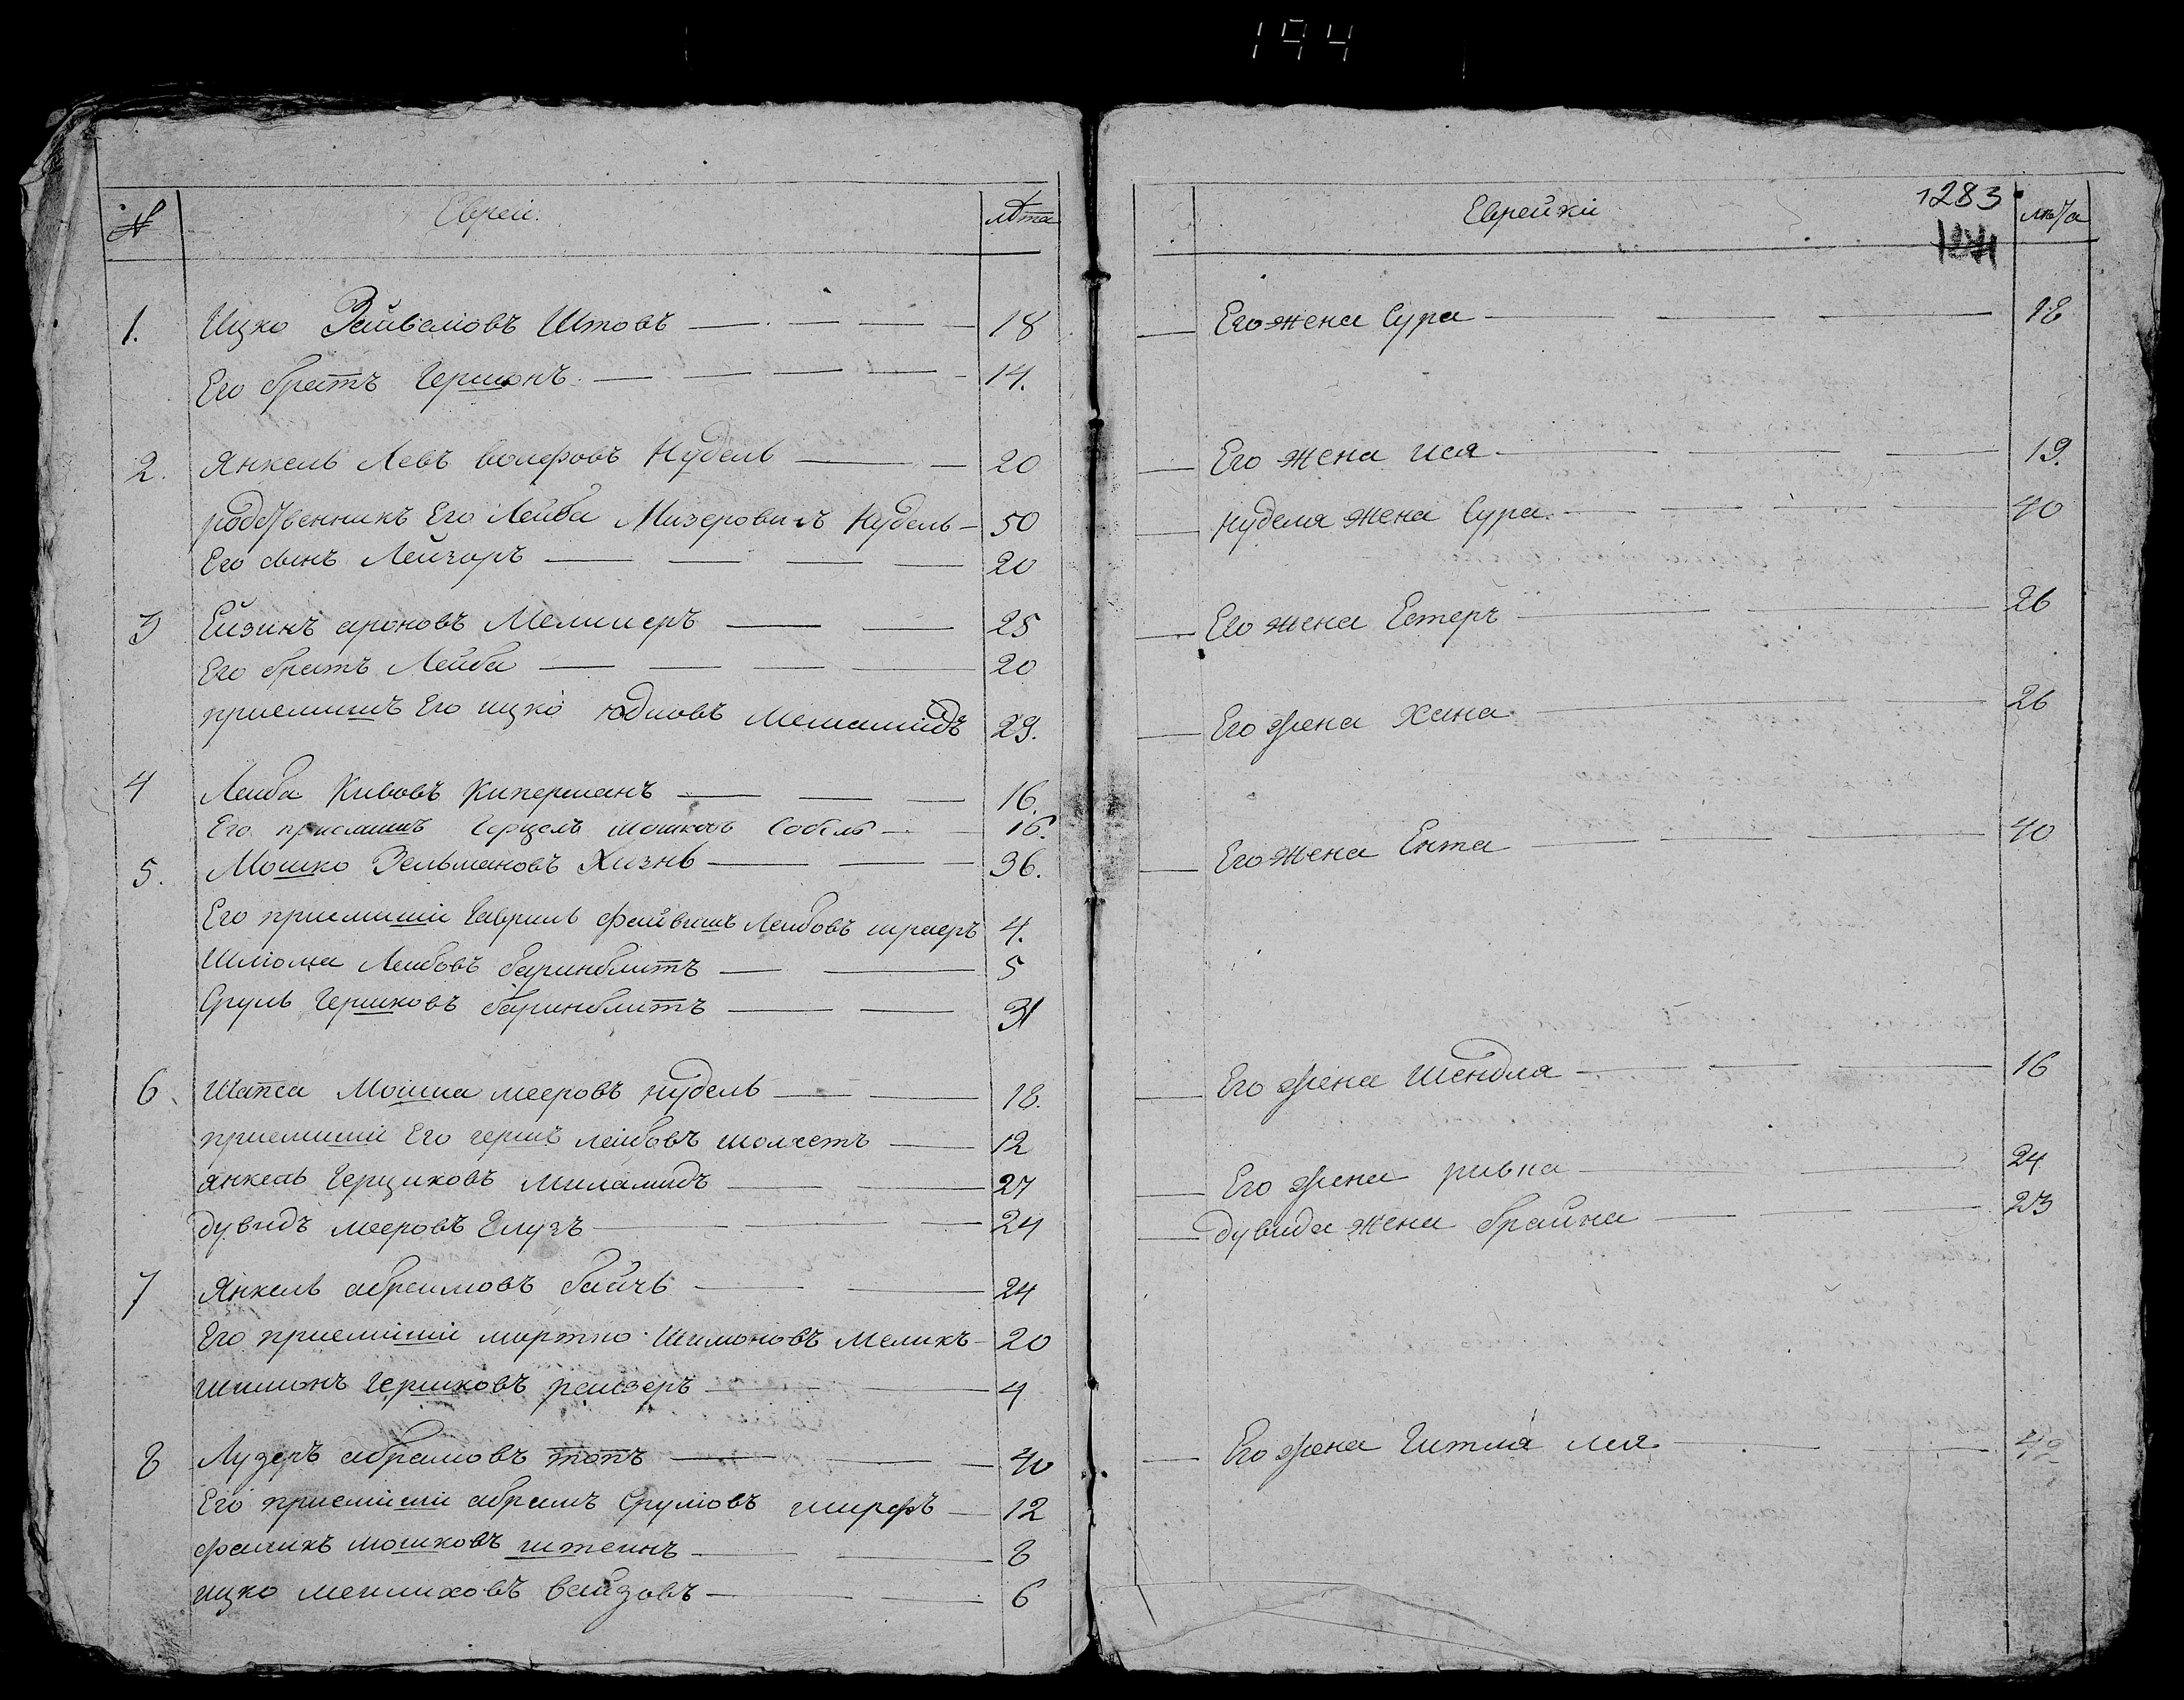 194
№ Евреи. лѣта
1. Ицко Зайвелiовъ Штовъ 18
Его братъ Гершонъ. 14.
2. Янкель Левъ волфовъ Нудель 20
родственникъ Его Лейба Мизеровичъ Нудель 50
Его сынъ Лейзоръ 20
3 Ейзикъ ароновъ 25
Его братъ Лейба 20
приемишъ Его ицко юдковъ 29.
4 Лейба Кивовъ Киперманъ 16.
Его приемишъ Герцель мошковъ Собель 16.
5. Мошко Зельмановъ Хизнь 36.
Его приемишi Гаврилъ файвишъ Лейбовъ 4.
Шлiома Лейбовъ 5
Сруль Гершковъ 31
6. Шапса Мошка мееровъ нудель 18.
приемишi Его гершъ лейбовъ 12
янкель Герщиковъ Миламидъ 27
дувидъ мееровъ 24
7 Янкель абрамовъ 24
Его приемишi мортко Шимоновъ Меликъ 20
шимонъ Гершковъ рейзеръ 4
8 Лузеръ абрамовъ топъ 40
Его приемишi абрамъ Срулiовъ ширфъ 12
фаликъ мошковъ штеинъ 8
ицко мейлиховъ 6
Еврейкi лѣта
1283
Его жена Сура 18
Его жена 19.
нуделя жена Сура. 40
Его жена Естеръ 26
Его жена Хана 26
Его жена Ента 40
Его жена Шендля 16
Его жена ривка 24
дувида жена брайна 23
Его жена Гитля лея 42